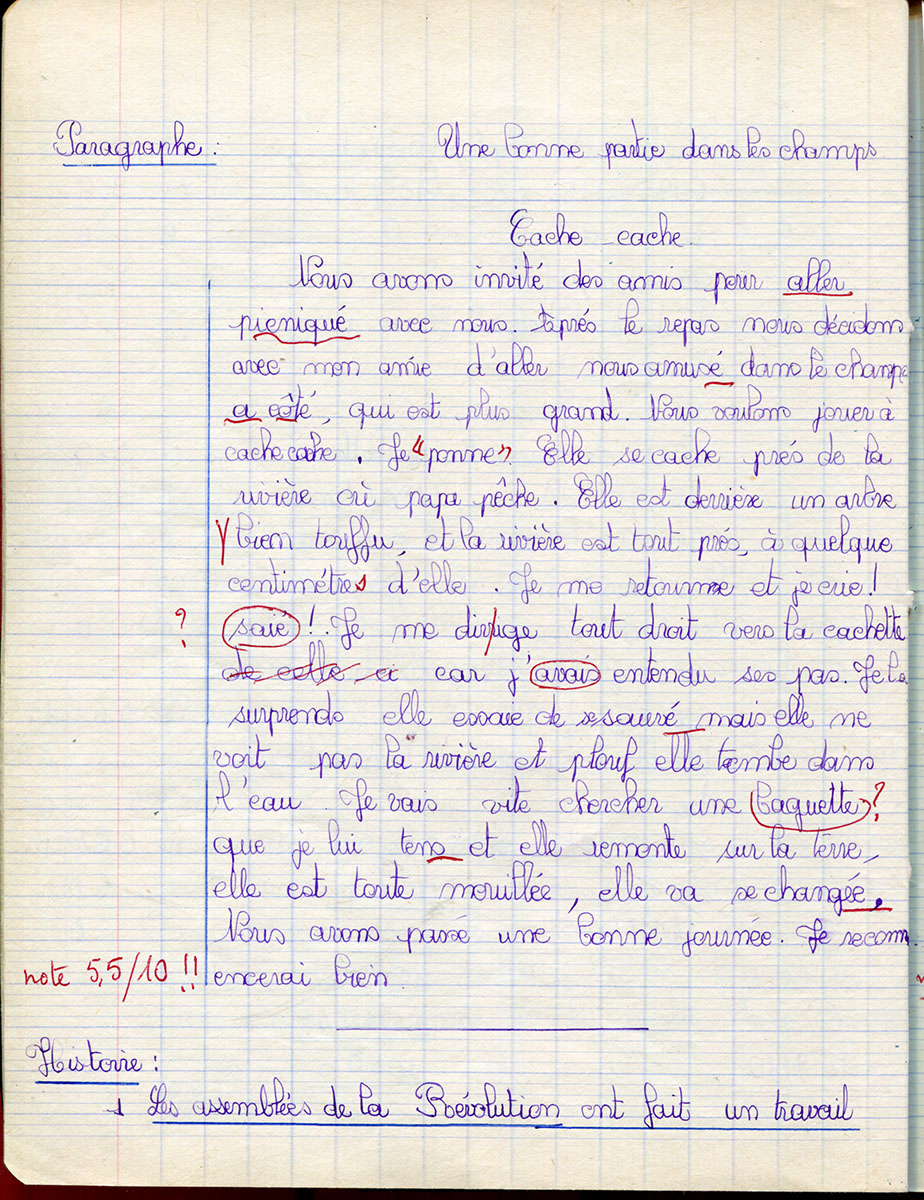 Paragraphe : Une bonne partie dans les champs
Cache cache.
Nous avons invité des amis pour aller
pieniqué avec nous. Après le repas nous décidons
avec mon amie d'aller nous amusé dans le champs
a côté, qui est plus grand. Nous voulons jouer à
cache cache. Je "ponne". Elle se cache prés de la
rivière où papa pêche. Elle est derrière un arbre
bien touffu, et la rivière est tout prés, à quelque
centimétres d'elle. Je me retourne et je crie !
? saié !. Je me dirige tout droit vers la cachette
de celle ci car j'avais entendu ses pas. Je la
surprends elle essaie de se sauvé mais elle ne
voit pas la rivière et plouf elle tombe dans
l'eau. Je vais vite chercher une baguette ?
que je lui tens et elle remonte sur la terre,
elle est toute mouillée, elle va se changée.
Nous avons passé une bonne journée. Je recom
note 5,5/10 !! encerai bien.
Histoire :
1 Les assemblées de la Révolution ont fait un travail